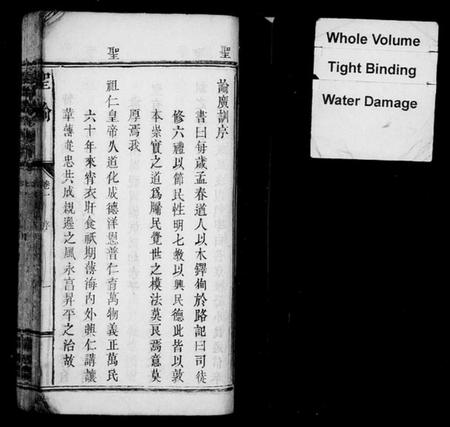 聖
諭廣訓序
書曰每歲孟春遒人以木鐸徇於路記曰司徒
修六禮以節民性明七教以興民德此皆以敦
本崇實之道為牖民覺世之模法莫良焉意莫
厚焉我
聖
祖仁皇帝久道化成德洋恩普仁育萬物義正萬民
六十年來宵衣旰食祇期薄海內外興仁講讓
革薄從忠共成親遜之風永享昇平之治故
聖諭
序
一
Whole Volume
Tight Binding
Water Damage